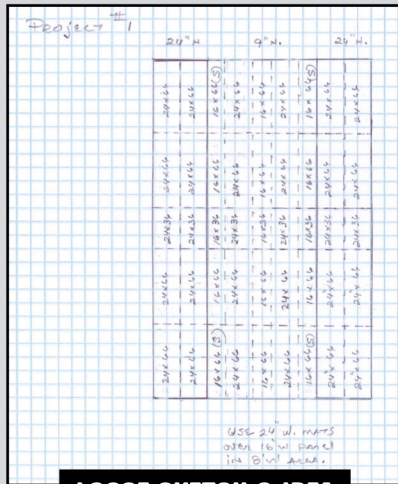 Project #1
24" H. 9" H. 24" H.
24x66 24x66 16x66(S) 24x66 16x66 24x66 16x66(S) 24x66 24x66
24x66 24x66 16x66 24x66 16x66 24x66 16x66 24x66 24x66
24x36 24x36 16x36 24x36 16x36 24x36 16x36 24x36 24x36
24x66 24x66 16x66 24x66 16x66 24x66 16x66 24x66 24x66
24x66 24x66 16x66(S) 24x66 16x66 24x66 16x66(S) 24x66 24x66
USE 24" W. MATS
OVER 16" W PANEL
IN 8' W AREA.